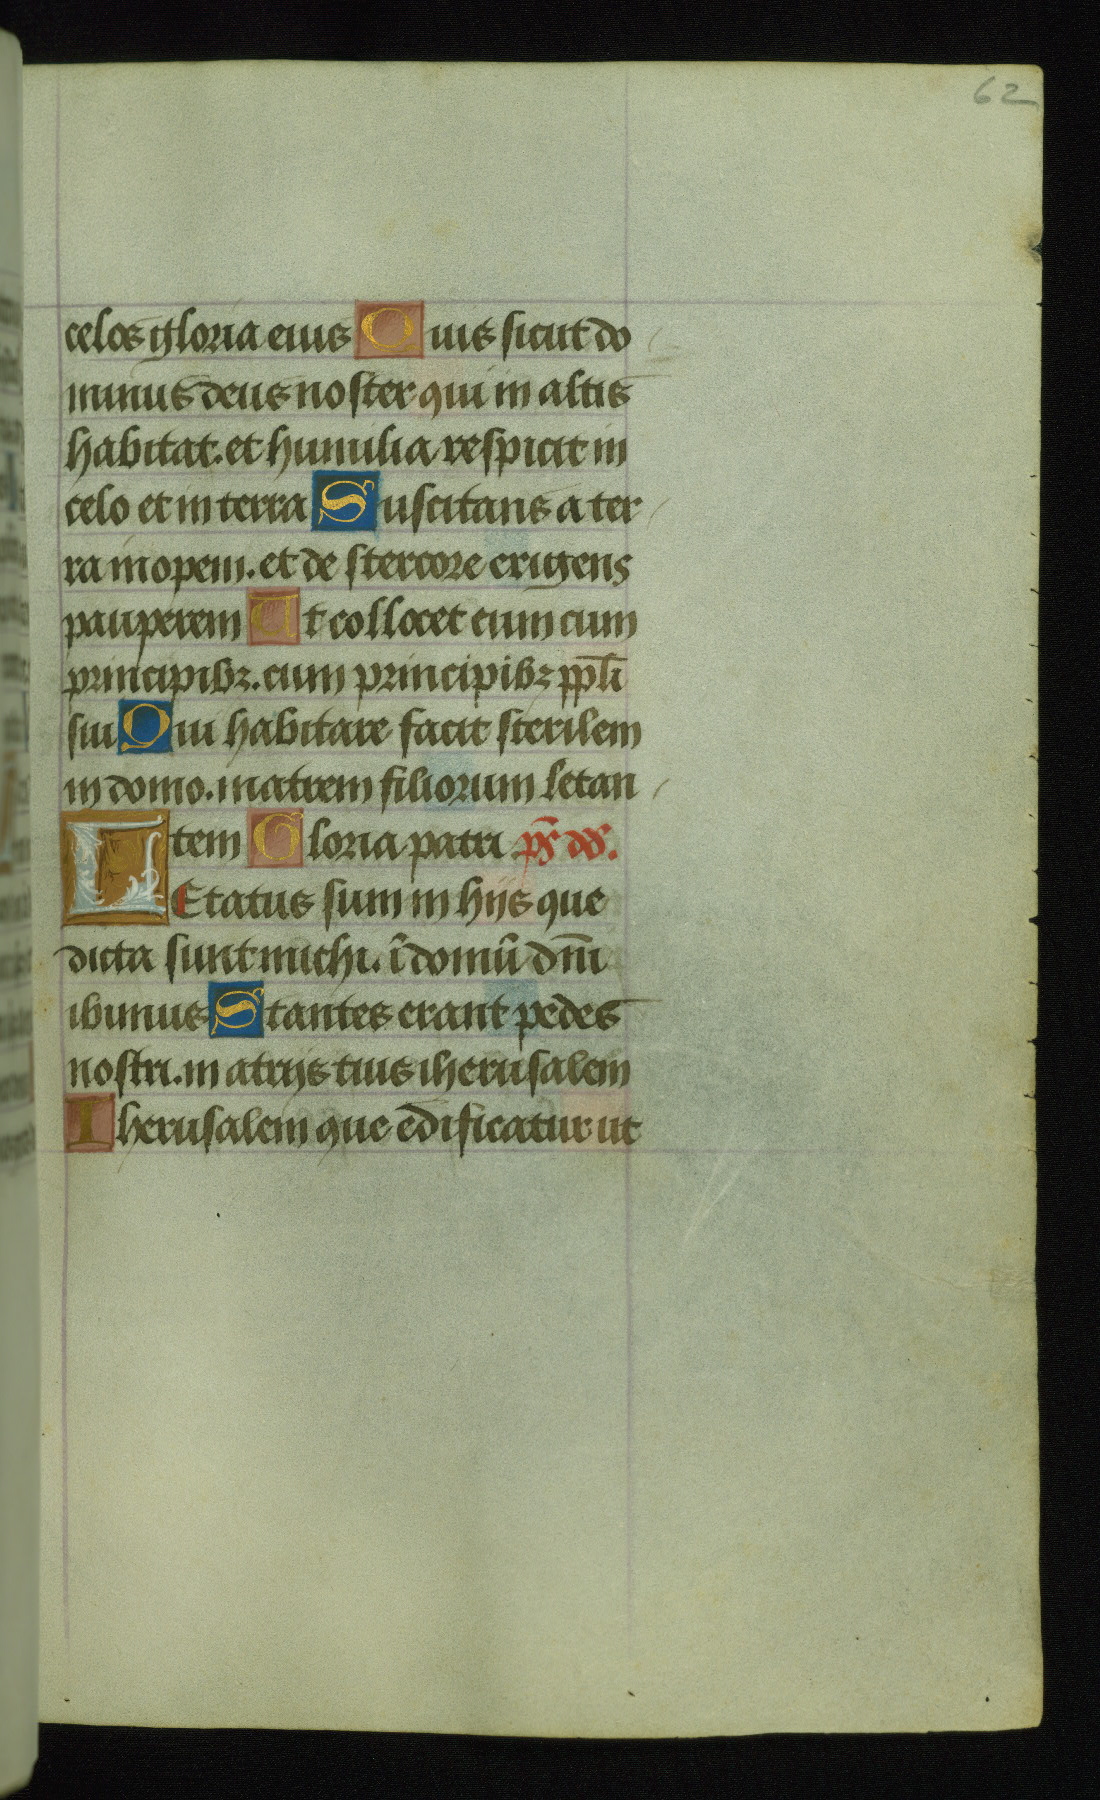 62
celos gloria eius Quis sicut do
minus deus noster qui in altis
habitat. et humilia respicit in
celo et in terra Suscitans a ter
ra inopem. et de stercore erigens
pauperem Ut collocet eum cum
principibꝫ. cum principibꝫ ppl̄i
sui Qui habitare facit sterilem
in domo. matrem filiorum letan
tem Gloria patri p̄s dd.
LEtatus sum in hijs que
dicta sunt michi. ī domū dn̄i
ibimus Stantes erant pedes
nostri. in atrijs tuis iherusalem
Iherusalem que edificatur ut